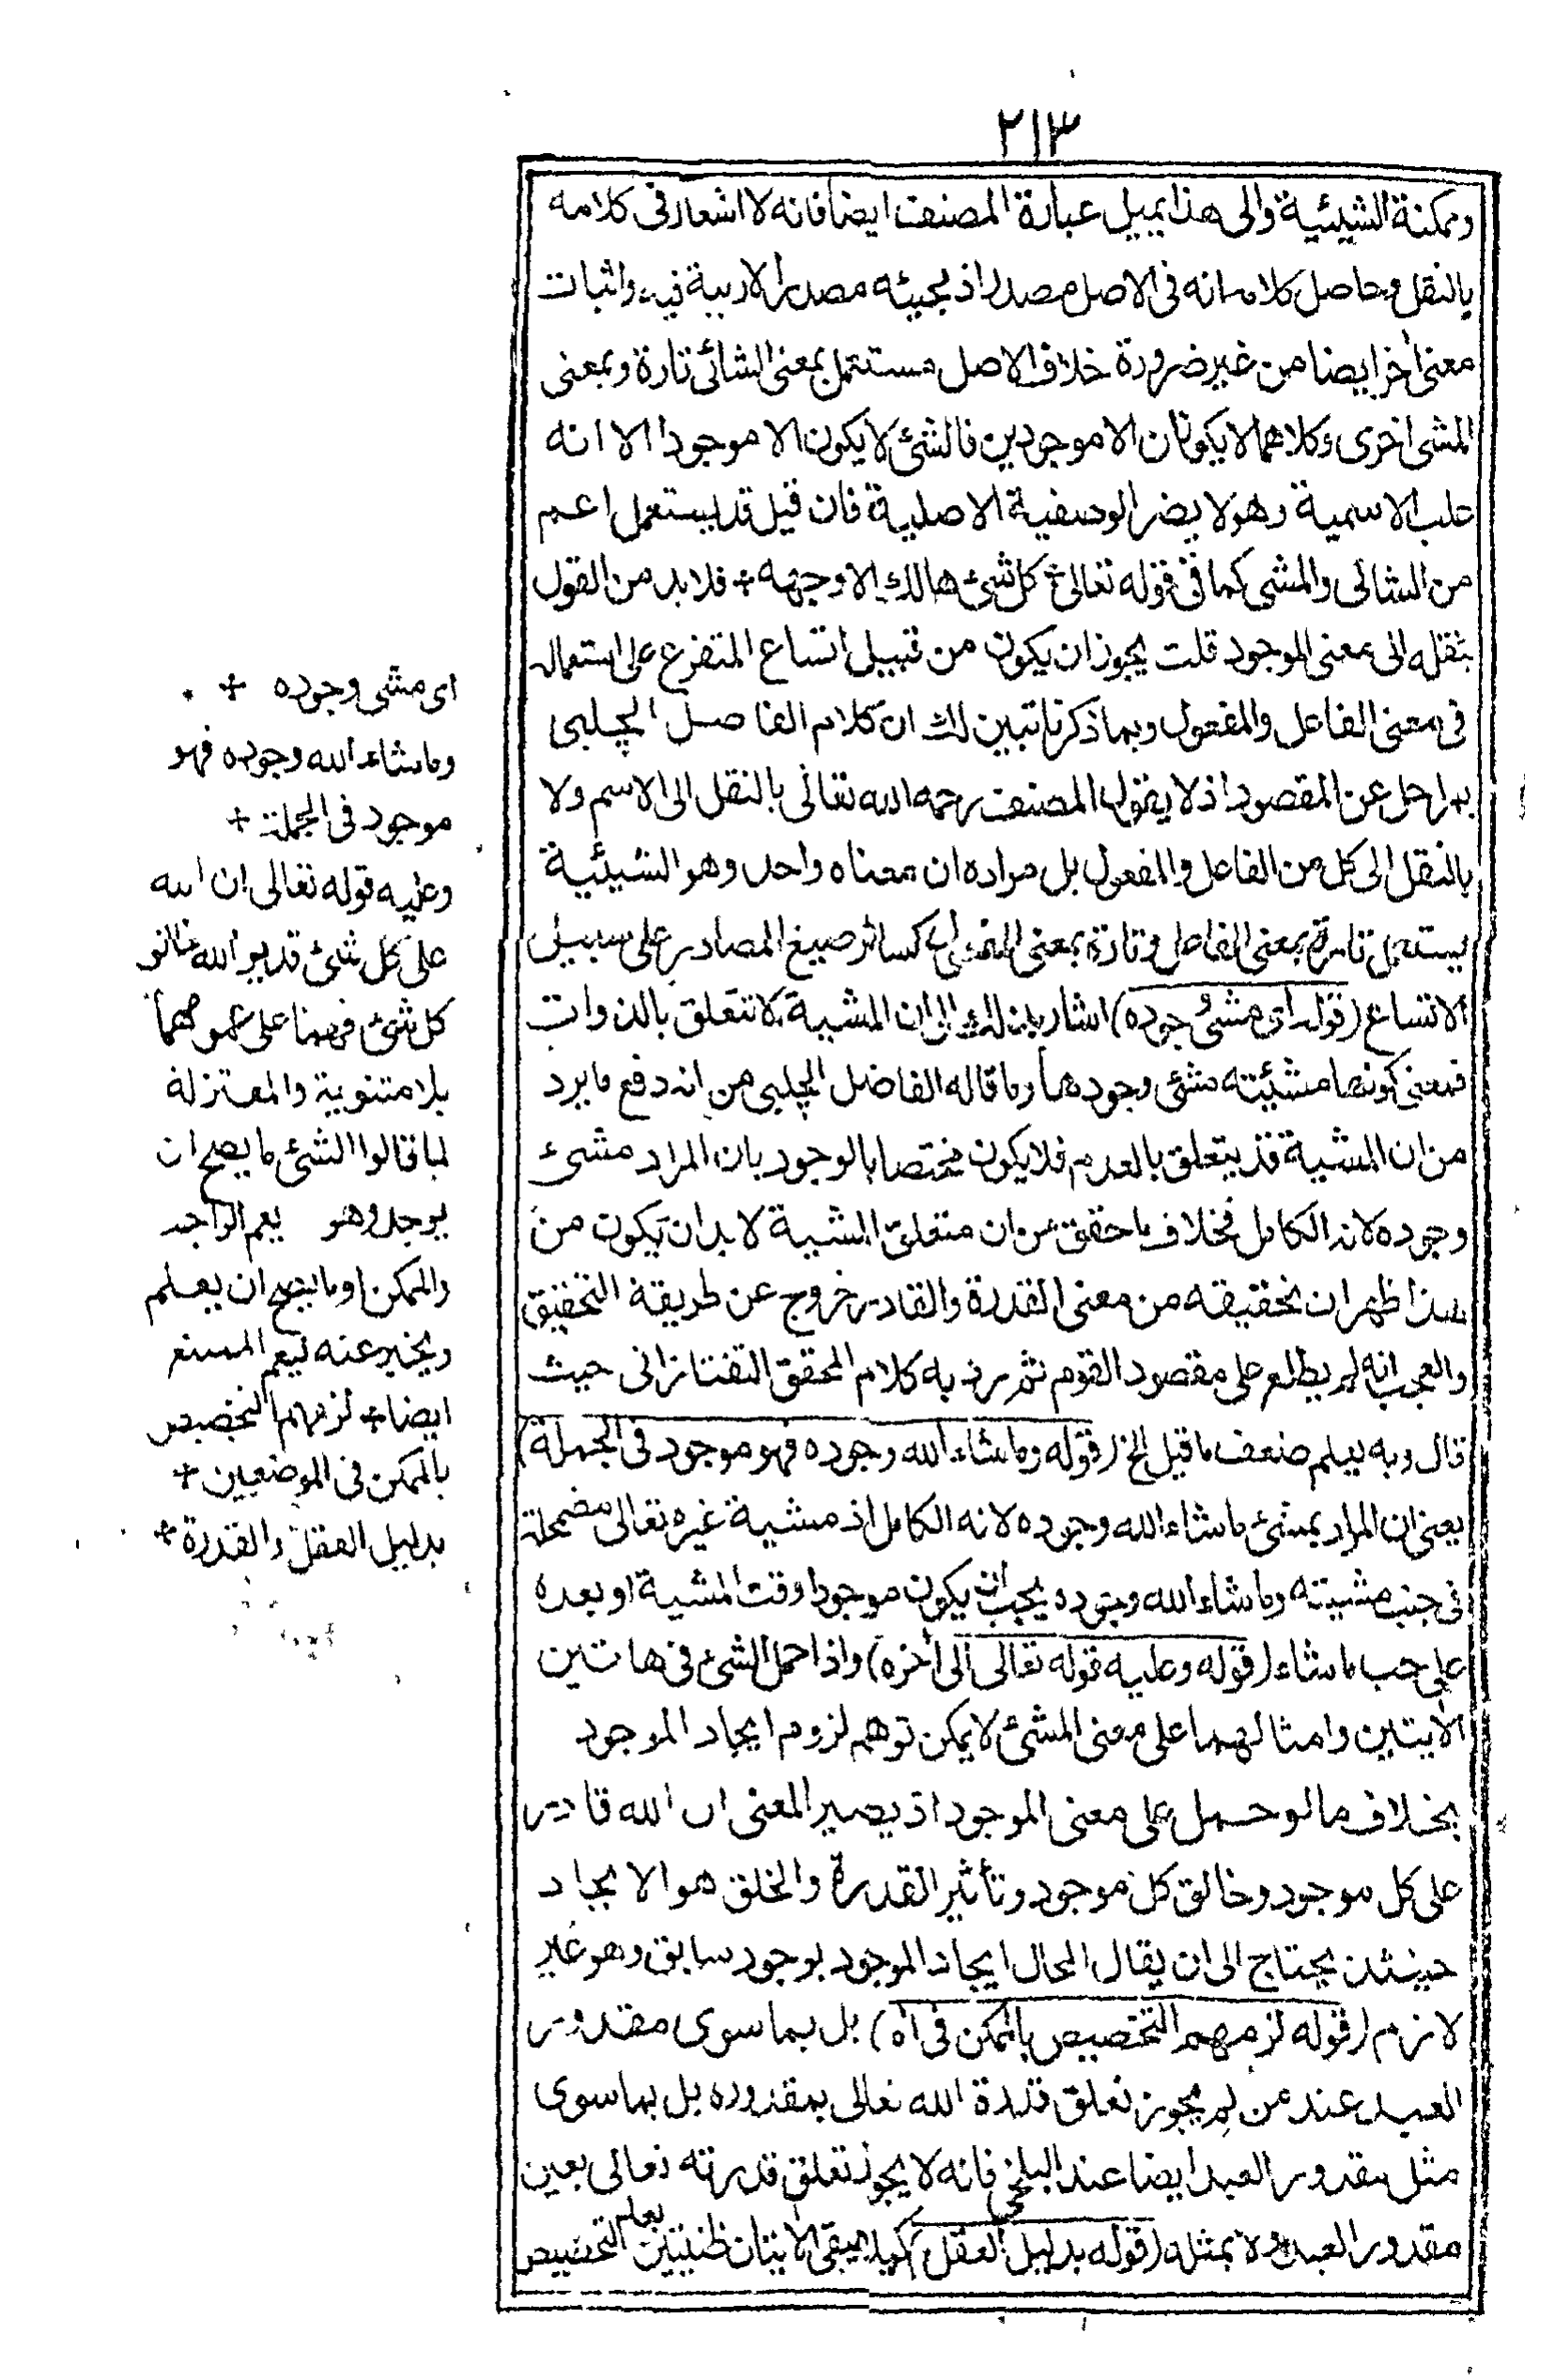 ٢١٣
وممكنة الشيئية والى هذا يميل عبارة المصنف ايضا فانه لا اشعار فى كلامه
بالنقل وحاصل كلامه انه فى الاصل مصدر اذ لمجيئه مصدرا لا ريبة فيه واثبات
معنى اخر ايضا من غير ضرورة خلاف الاصل مستعمل بمعنى الشائى تارة وبمعنى
المشى اخرى وكلاهما لا يكونان الا موجودين فالشئ لا يكون الا موجودا الا انه
غلب الاسمية وهو لا يضر الوصفية الاصلية فان قيل قد يستعمل اعم
من الشائى والمشى كما فى قوله تعالى كل شئ هالك الا وجهه + فلا بد من القول
بنقله الى معنى الموجود قلت يجوز ان يكون من قبيل اتساع المتفرع على استعماله
فى معنى الفاعل والمفعول وبما ذكرنا تبين لك ان كلام الفاضل الچلبى
بمراحل عن المقصود اذ لا يقول المصنف رحمه الله تعالى بالنقل الى الاسم ولا
بالنقل الى كل من الفاعل والمفعول بل مراده ان معناه واحد وهو الشيئية
يستعمل تارة بمعنى الفاعل وتارة بمعنى المفعول كسائر صيغ المصادر على سبيل
الاتساع (قوله اى مشئ وجوده) اشار بذلك الى ان المشية لا تتعلق بالذوات
فمعنى كونها مشيئته مشئ وجودها وما قاله الفاضل الچلبى من انه دفع ما يرد
من ان المشية قد يتعلق بالعدم فلا يكون مختصا بالوجود بان المراد مشئ
وجوده لانه الكامل فخلاف ما حقق من ان متعلق المشية لا بد ان يكون من
هذا ظهر ان تحقيقه من معنى القدرة والقادر خروج عن طريقة التحقيق
والعجب انه لم يطلع على مقصود القوم ثم رد به كلام المحقق التفتازانى حيث
قال وبه يعلم ضعف ما قيل الخ (قوله وما شاء الله وجوده فهو موجود فى الجملة)
يعنى ان المراد بمشئ ما شاء الله وجوده لانه الكامل اذ مشية غيره تعالى مضمحلة
فى جنب مشيته وما شاء الله وجوده يجب ان يكون موجودا وقت المشية او بعده
على حسب ما شاء (قوله وعليه قوله تعالى الى اخره) واذا حمل الشئ فى هاتين
الايتين وامثالهما على معنى المشئ لا يمكن توهم لزوم ايجاد الموجود
بخلاف ما لو حمل على معنى الموجود اذ يصير المعنى ان الله قادر
على كل موجود وخالق كل موجود وتأثير القدرة والخلق هو الايجاد
حينئذ يحتاج الى ان يقال المحال ايجاد الموجود بوجود سابق وهو غير
لازم (قوله لزمهم التخصيص بالممكن فى اه) بل بما سوى مقدور
العبد عند من لم يجوز تعلق قدرة الله تعالى بمقدوره بل بما سوى
مثل مقدور العبد ايضا عند البلخى فانه لا يجوز تعلق قدرته تعالى بعين
مقدور العبد ولا بمثله (قوله بدليل العقل) كيلا يبقى الايتان ظنيتين بعلم التخصيص
اى مشى وجوده +
وما شاء الله وجوده فهو
موجود فى الجملة +
وعليه قوله تعالى ان الله
على كل شئ قدير الله خالق
كل شئ فهما على عمومهما
بلا مثنوية والمعتزلة
لما قالوا الشئ ما يصح ان
يوجد وهو يعم الواجب
والممكن او ما يصح ان يعلم
ويخبر عنه ليعم الممتنع
ايضا + لزمهم التخصيص
بالممكن فى الموضعين +
بدليل العقل والقدرة +